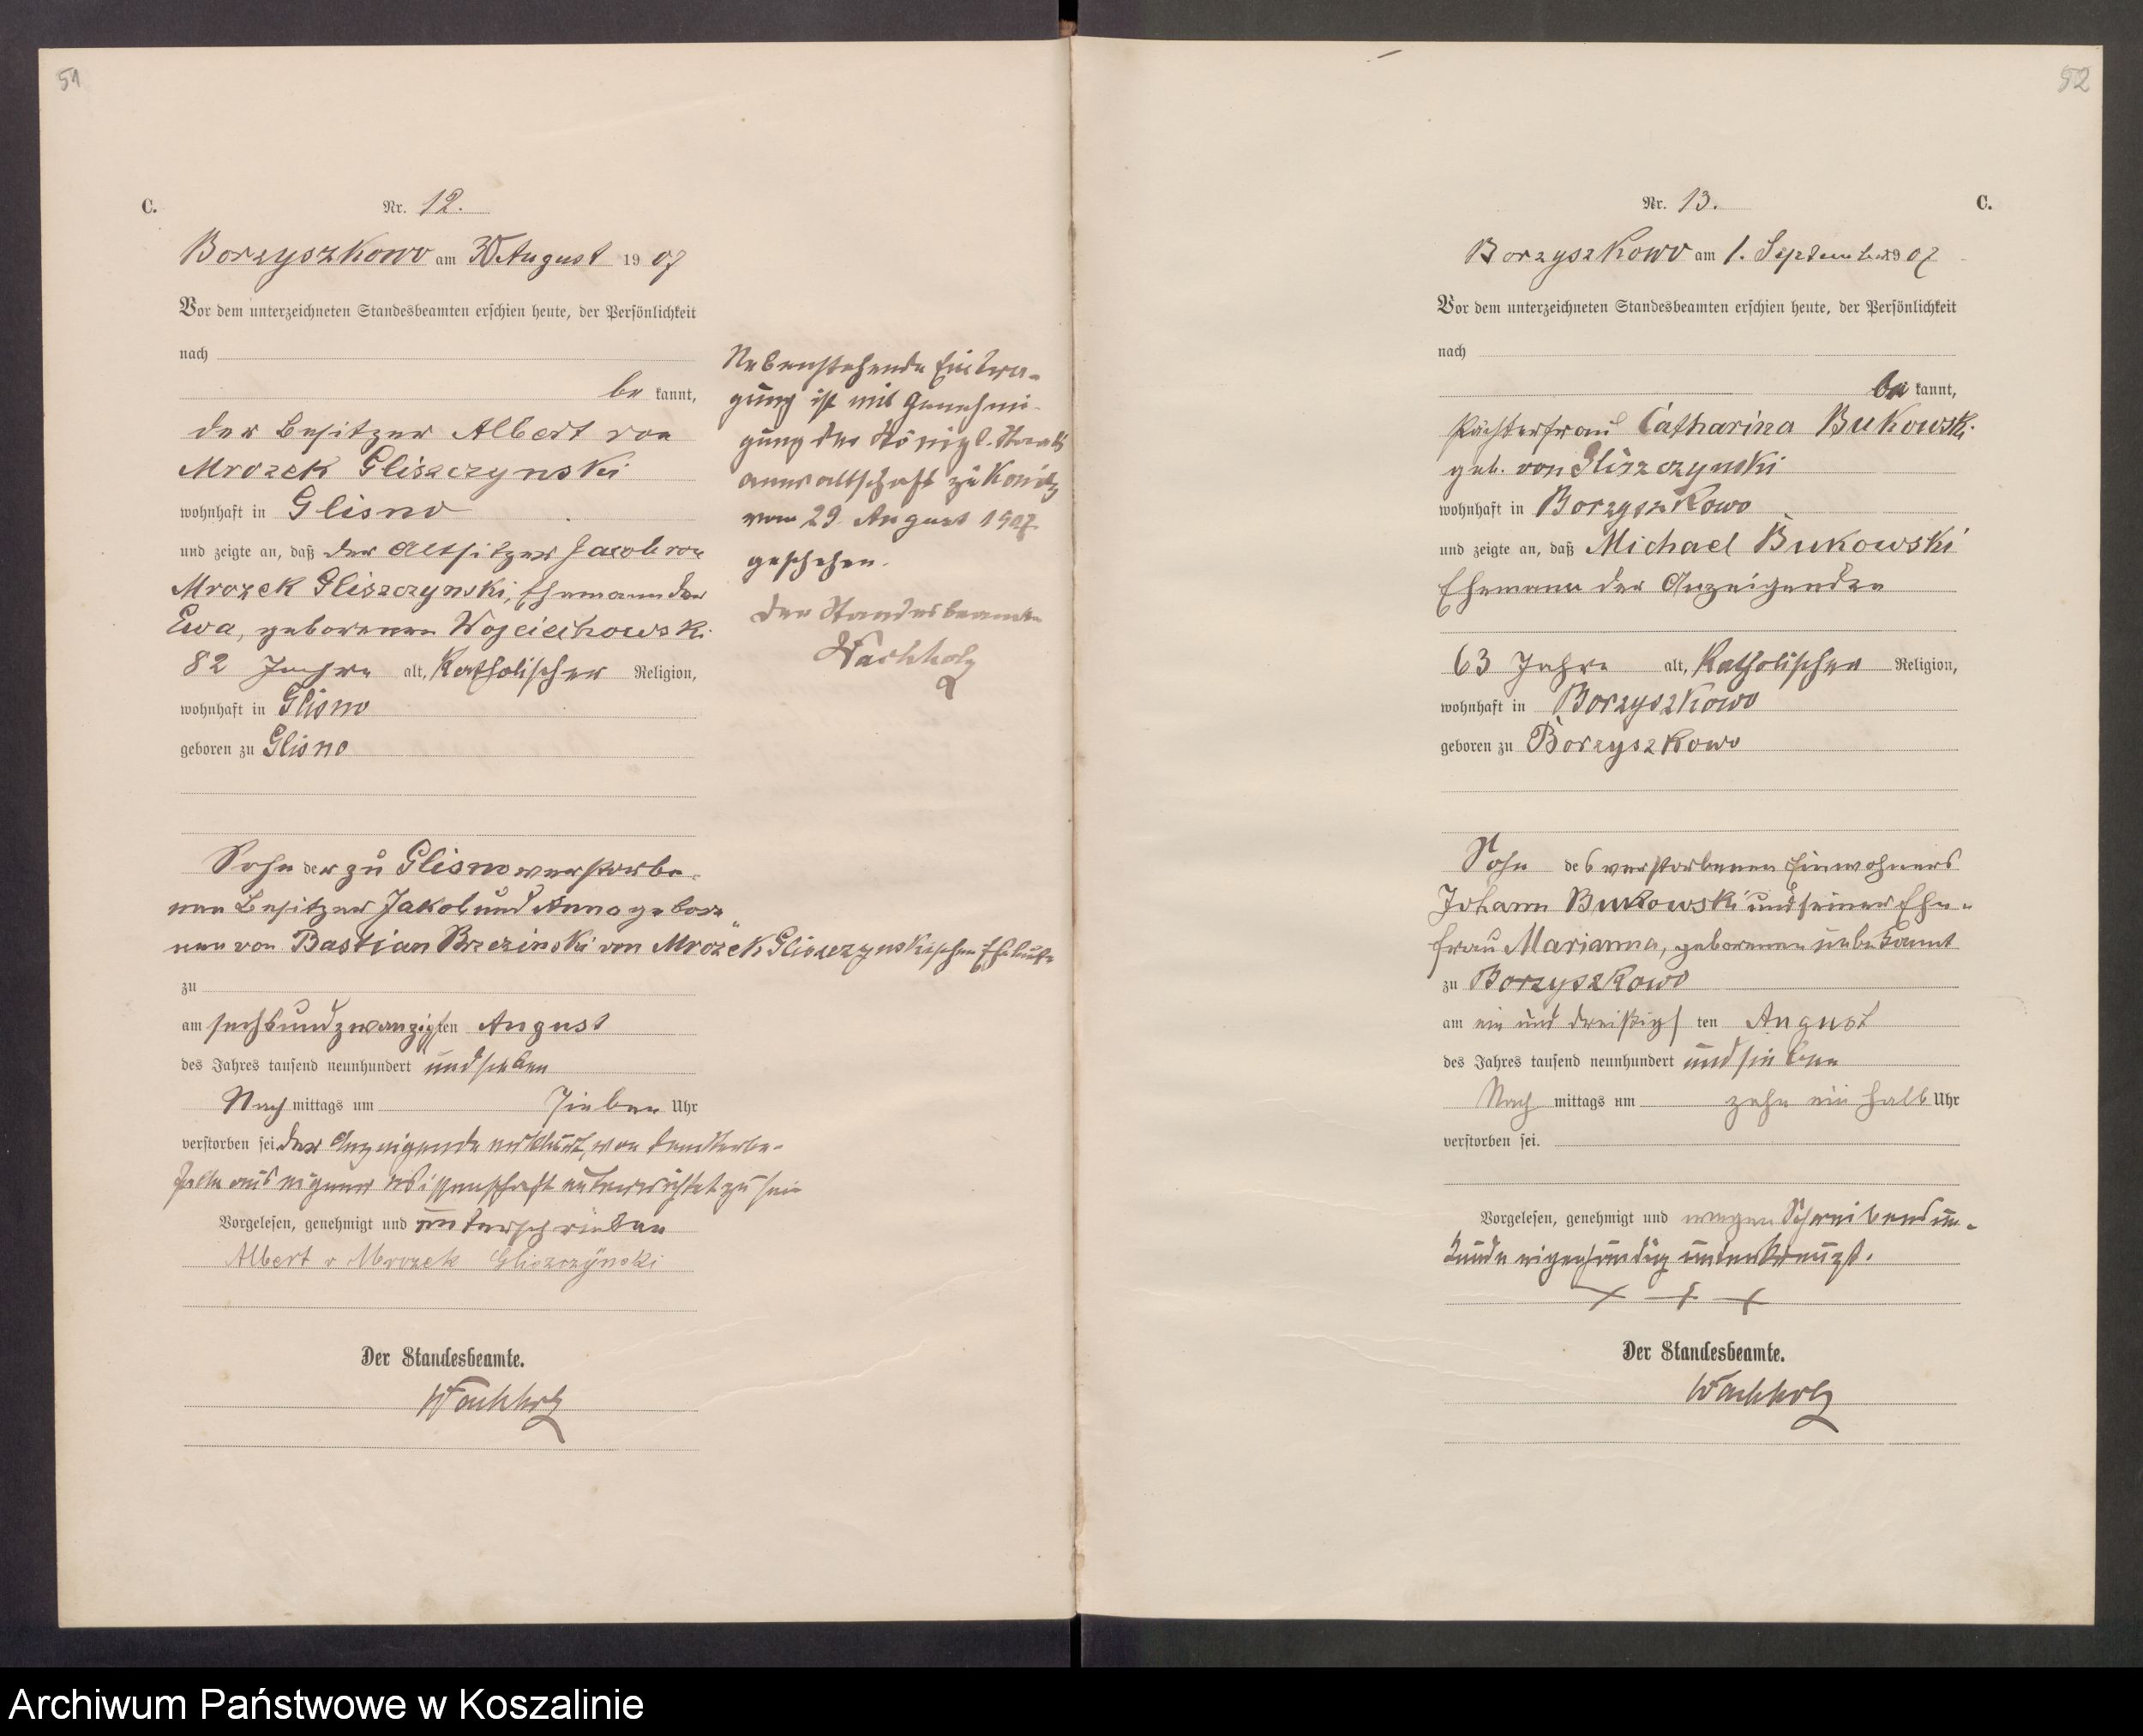 51
C.
Nr. 12.
Borzyszkowo am 30 August 1907
Vor dem unterzeichneten Standesbeamten erschien heute, der Persönlichkeit
nach
be kannt,
der Besitzer Albert von
Mrozek Gliszczynski
wohnhaft in Glisno
und zeigte an, daß der Altsitzer Jacob von
Mrozek Gliszczynski, Ehemann der
Ewa, geborenen Wojciechowski
82 Jahre alt, Katholischer Religion,
wohnhaft in Glisno
geboren zu Glisno
Sohn der zu Glisno verstorbe-
nen Besitzer Jakob und Anna gebore-
nen von Bastian Brzezinski von Mrozek Gliszczynskischen Eheleute
zu
am sechsundzwanzigsten August
des Jahres tausend neunhundert und sieben
Nach mittags um sieben Uhr
verstorben sei. Der Anzeigende erklärt, von dem Sterbe-
falle aus eigener Wissenschaft unterrichtet zu sein
Vorgelesen, genehmigt und unterschrieben
Albert v Mrozek Gliszczÿnski
Der Standesbeamte.
Wachholz
Nebenstehende Eintra-
gung ist mit Genehmi-
gung der Königl. Staats
anwaltschaft zu Konitz
vom 29. August 1907
geschehen.
Der Standesbeamte
Wachholz
52
Nr. 13.
C.
Borzyszkowo am 1. September 1907
Vor dem unterzeichneten Standesbeamten erschien heute, der Persönlichkeit
nach
be kannt,
Catharina Bukowski
geb. von Gliszczynski
wohnhaft in Borzyszkowo
und zeigte an, daß Michael Bukowski
Ehemann der Anzeigenden
63 Jahre alt, Katholischer Religion,
wohnhaft in Borzyszkowo
geboren zu Borzyszkowo
Sohn des verstorbenen Einwohners
Johann Bukowski und seiner Ehe-
frau Marianna, geborenen unbekannt
zu Borzyszkowo
am ein und dreißigs ten August
des Jahres tausend neunhundert und sieben
Nach mittags um zehn ein halb Uhr
verstorben sei.
Vorgelesen, genehmigt und wegen Schreibensun-
kunde eigenhändig unterkreuzt.
+ + +
Der Standesbeamte.
Wachholz
Archiwum Państwowe w Koszalinie